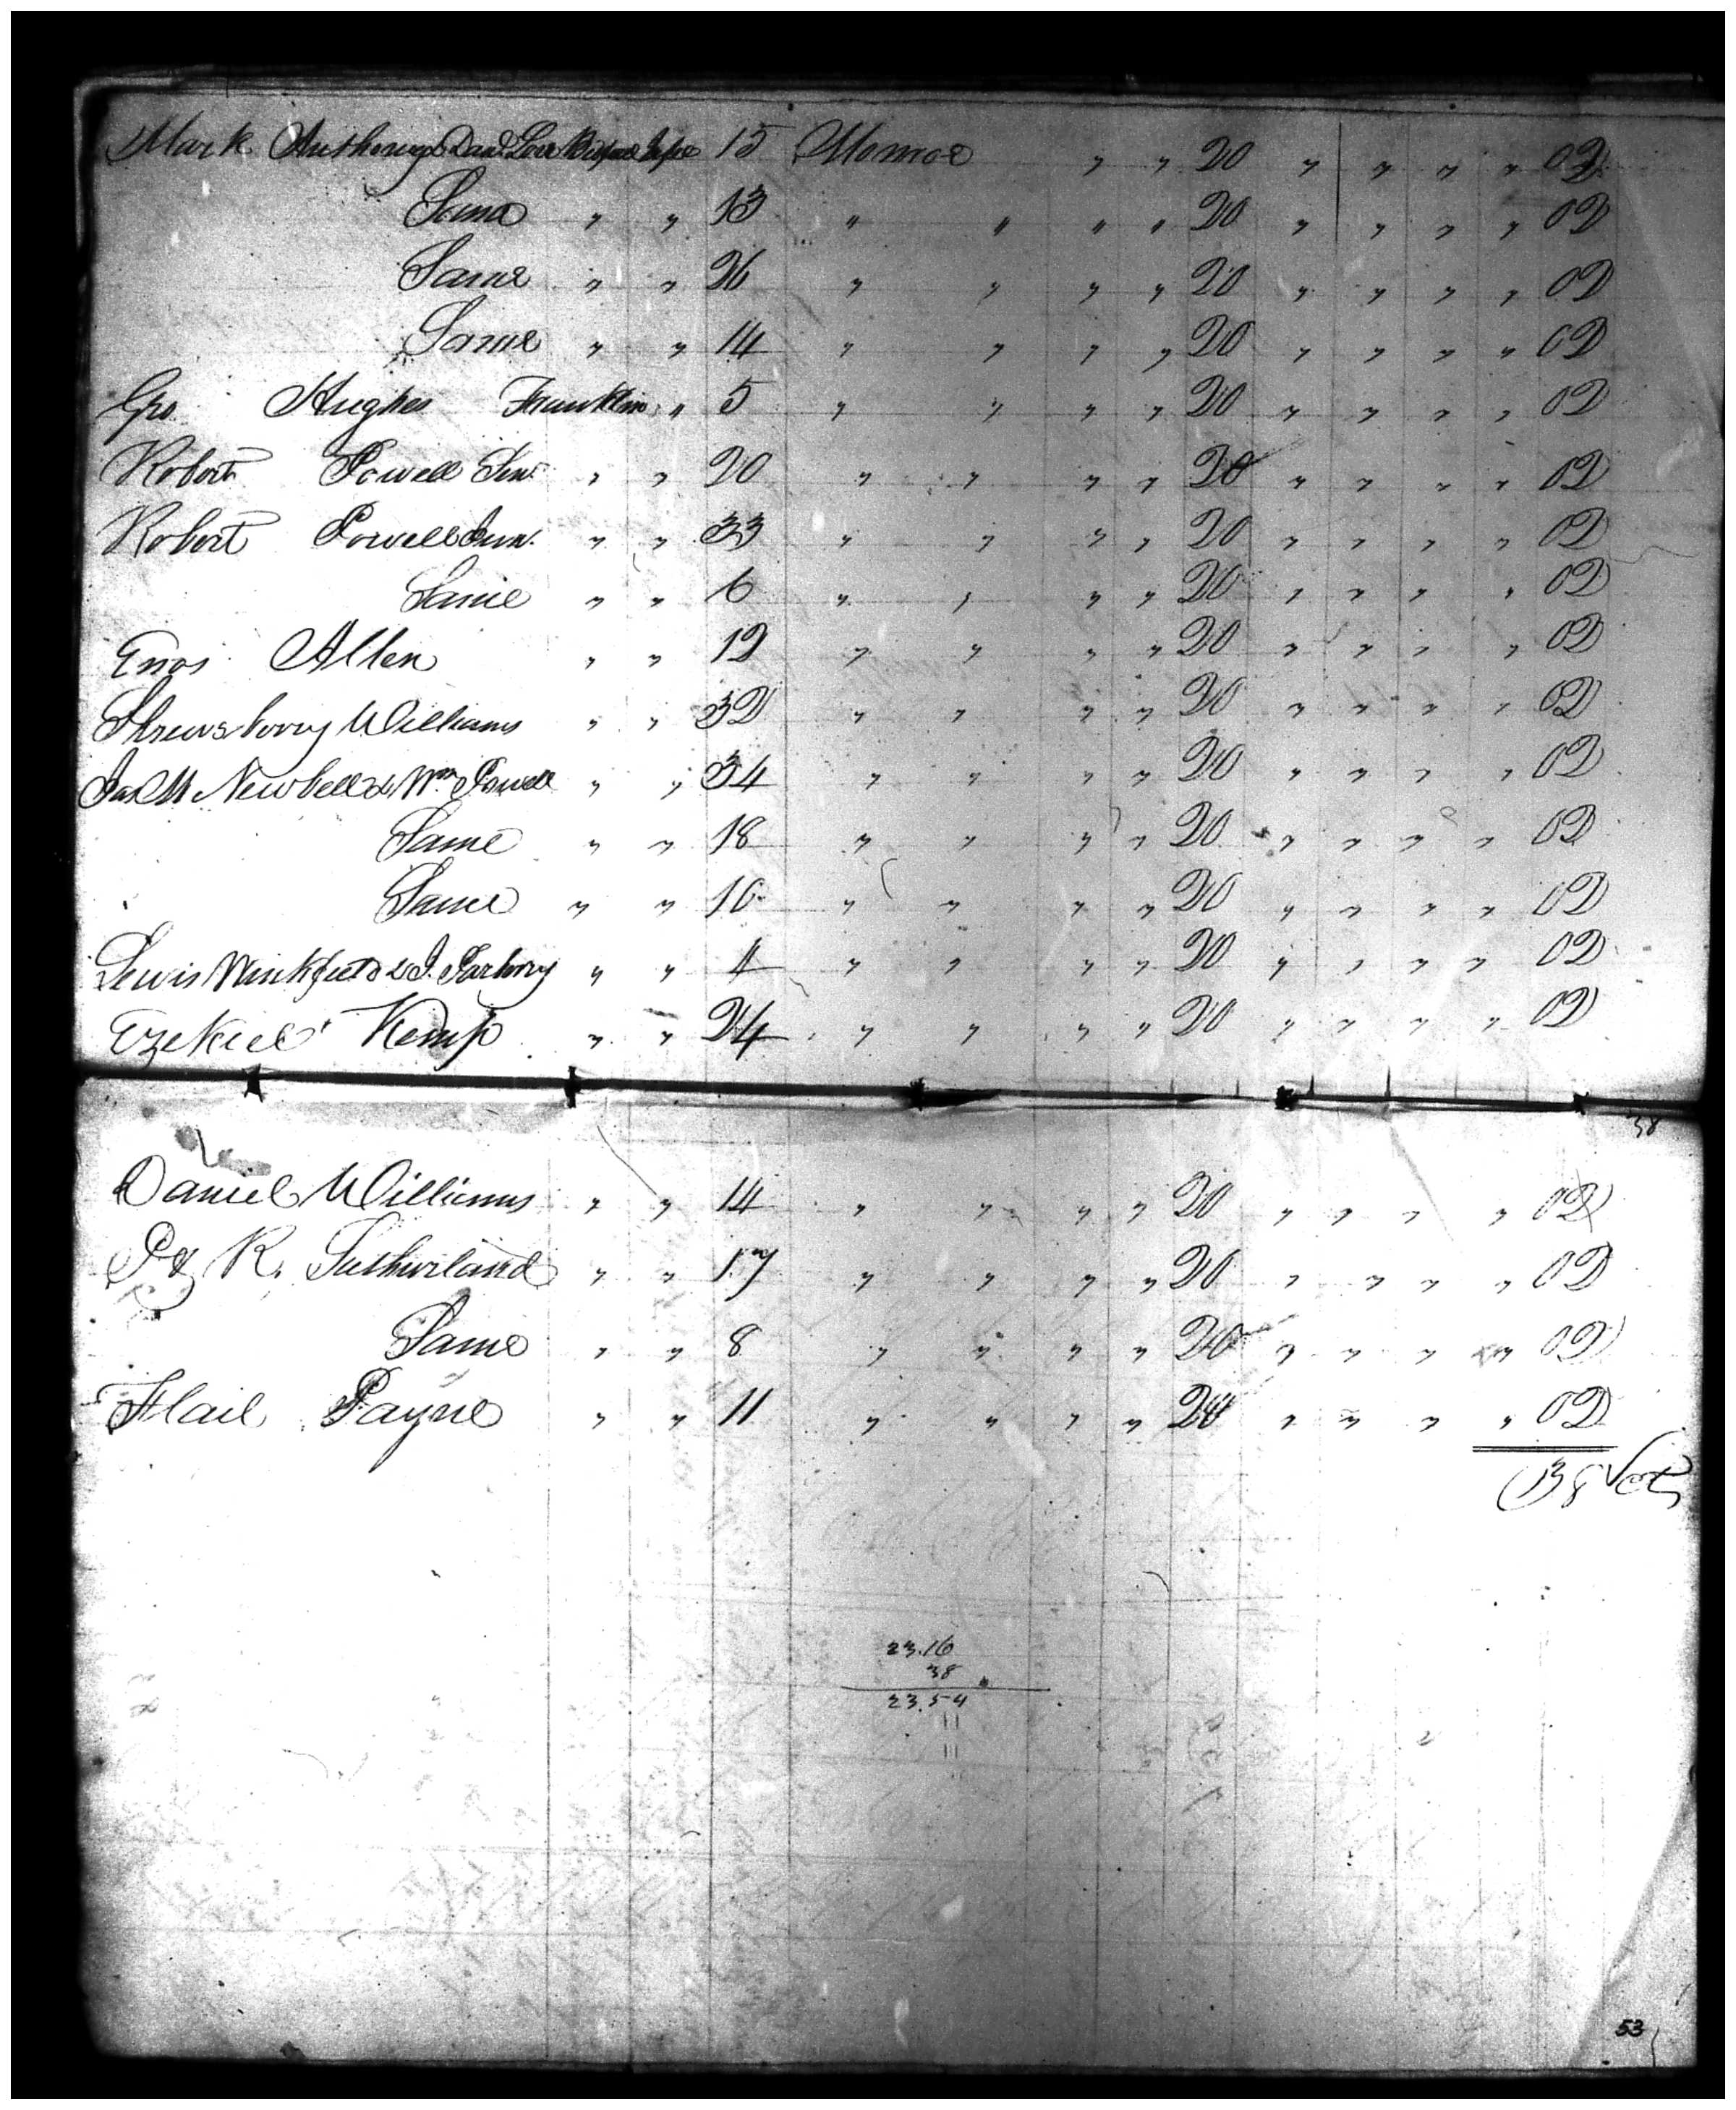 Mark Anthony & Danl 15 Monroe " " 20 " " " " 02
Same " " 13 " " " " 20 " " " " 02
Same " " 26 " " " " 20 " " " " 02
Same " " 14 " " " " 20 " " " " 02
Geo Hughes Franklin " 5 " " " " 20 " " " " 02
Robert Powell Sen. " " 20 " " " " 20 " " " " 02
Robert Powell Jun. " " 33 " " " " 20 " " " " 02
Same " " 6 " " " " 20 " " " " 02
Enos Allen " " 12 " " " " 20 " " " " 02
Shrewsberry Williams " " 32 " " " " 20 " " " " 02
Jas M Newbell & Wm Powell " " 34 " " " " 20 " " " " 02
Same " " 18 " " " " 20 " " " " 02
Same " " 10 " " " " 20 " " " " 02
Lewis Winkfield & J. " " 4 " " " " 20 " " " " 02
Ezekiel Kemp " " 24 " " " " 20 " " " " 02
38
Daniel Williams " " 14 " " " " 20 " " " " 02
P & R. Sutherland " " 17 " " " " 20 " " " " 02
Same " " 8 " " " " 20 " " " " 02
Flail Payne " " 11 " " " " 20 " " " " 02
38
23.16
38
23.54
53